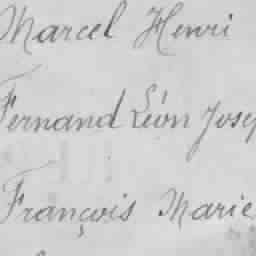 Marcel Henri
Fernand Léon Josep
François Marie